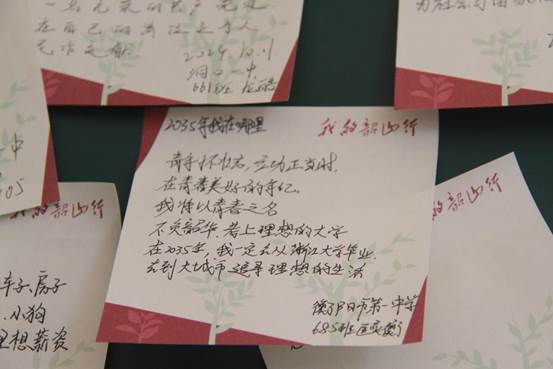 在自己的岗位上为人
2024.10.11
洞口一中
661班
为社会
中
05
2035年我在哪里 我的韶山行
青年怀壮志，立功正当时，
在青春美好的年纪。
我将以青春之名
不负韶华.考上理想的大学
在2035年，我一定会从浙江大学毕业.
去到大城市追寻理想的生活
衡阳市第一中学
685班
我的韶山行
车子、房子
小狗
理想薪资
我的韶山行